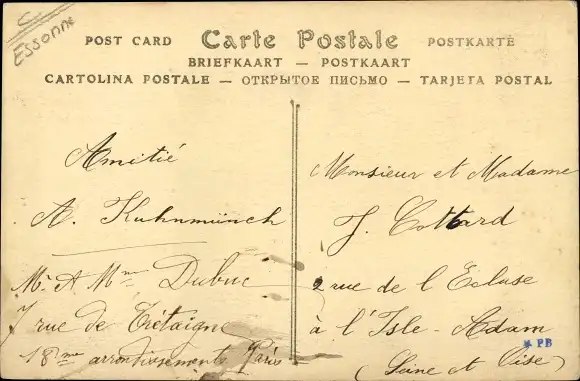 C
Essonne
POST CARD Carte Postale POSTKARTE
BRIEFKAART — POSTKAART
CARTOLINA POSTALE — ОТКРЫТОЕ ПИСЬМО — TARJETA POSTAL
Amitié
A. Kuhnmünch
Mr A Mme Dubuc
7 rue de Trétaigne
18me arrondissements Paris
Monsieur et Madame
J. Cottard
2 rue de l'Ecluse
à l'Isle-Adam
(Seine et Oise)
* PB